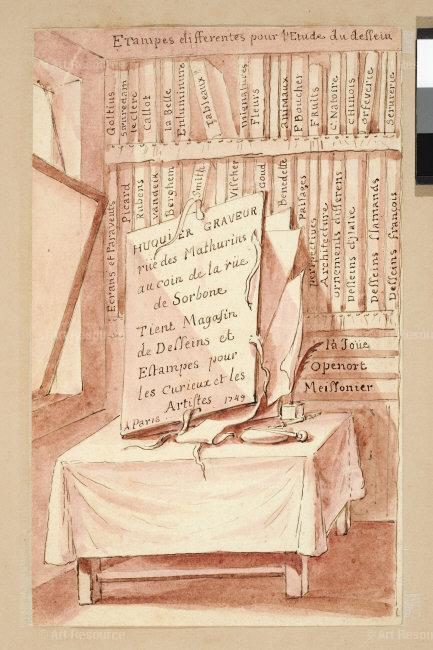 Etampes differentes pour l'Etude du dessein
Goltius
sweredam
le clerc
Callot
la Belle
Enluminure
Tableaux
mignatures
Fleurs
animaux
P. Boucher
Fruits
c. Natoire
chinois
orfeverie
serrurerie
Ecrans et Paravents
Picard
Rubens
Berghem
Smith
Visscher
Goud
Benedette
Paisages
perspectives
Architecture
ornements differens
Desseins d'Italie
Desseins flamands
Desseins francois
HUQUIER GRAVEUR
rüe des Mathurins
au coin de la rüe
de Sorbone
Tient Magasin
de Desseins et
Estampes pour
les Curieux et les
Artistes 1749
A Paris
la Joüe
Openort
Meissonier
© Art Resource